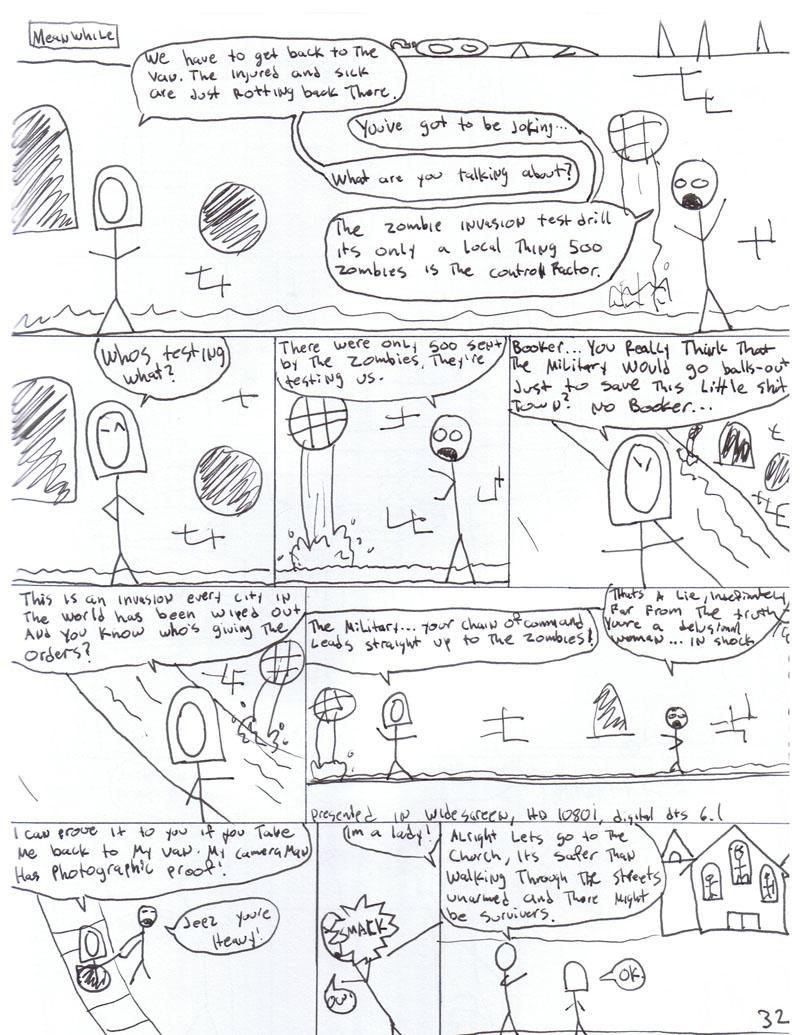 Meanwhile
We have to get back to the
van. The injured and sick
are just rotting back there.
You've got to be joking...
What are you talking about?
The zombie invasion test drill
its only a local thing 500
zombies is the control factor.
Whos testing
what?
There were only 500 sent
by the zombies, They're
testing us.
Booker... You Really Think That
The Military would go balls-out
Just to save This Little shit
Town? No Booker...
This is an invasion every city in
The world has been wiped out
And you know who's giving the
orders?
The Military... your chain of command
Leads straight up to the zombies!
Thats A Lie,
Far From The truth
you're a delusional
woman... in shock
presented in widescreen, HD 1080i, digital dts 6.1
I can prove it to you if you Take
Me back to My van. My cameraman
Has Photographic proof!
Jeez you're
Heavy!
Im a lady!
SMACK
OW!
Alright Lets go to The
Church, Its safer Than
Walking Through The streets
unarmed. and There Might
be survivers.
OK.
32